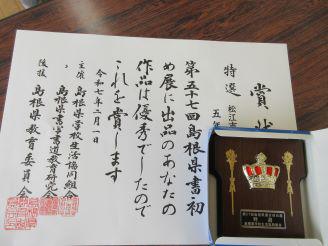 賞状
特選 松江市
五年
第五十七回島根県書・初
め展に出品のあなたの
作品は優秀でしたので
これを賞します
令和七年一月一日
主催 島根県学校生活協同組
島根県書写書道教育研究会
後援 島根県教育委員会
特選